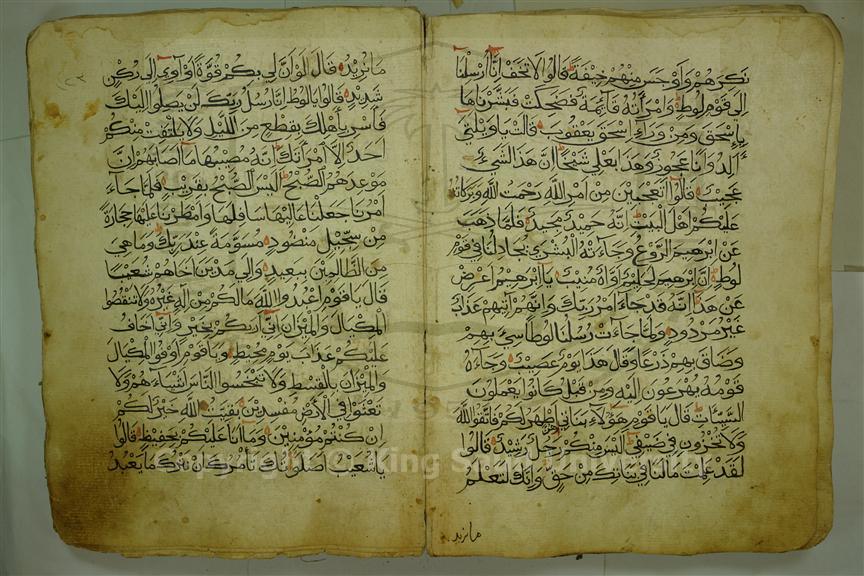 نكرهم واوجس منهم خيفة قالوا لا تخف انا ارسلنا
الى قوم لوط وامرأته قائمة فضحكت فبشرناها
باسحق ومن وراء اسحق يعقوب قالت ياويلتى
أألد وانا عجوز وهذا بعلي شيخا ان هذا لشيء
عجيب قالوا أتعجبين من امر الله رحمت الله وبركاته
عليكم اهل البيت انه حميد مجيد فلما ذهب
عن ابرهيم الروع وجاءته البشرى يجادلنا في قوم
لوط ان ابرهيم لحليم اواه منيب ياابرهيم اعرض
عن هذا انه قد جاء امر ربك وانهم اتيهم عذاب
غير مردود ولما جاءت رسلنا لوطا سيء بهم
وضاق بهم ذرعا وقال هذا يوم عصيب وجاءه
قومه يهرعون اليه ومن قبل كانوا يعملون
السيئات قال ياقوم هؤلاء بناتي هن اطهر لكم فاتقوا الله
ولا تخزون في ضيفي اليس منكم رجل رشيد قالوا
لقد علمت مالنا في بناتك من حق وانك لتعلم
مانريد
مانريد قال لو ان لي بكم قوة او آوي الى ركن
شديد قالوا يالوط انا رسل ربك لن يصلوا اليك
فأسر بأهلك بقطع من الليل ولا يلتفت منكم
احد الا امرأتك انه مصيبها ما اصابهم ان
موعدهم الصبح اليس الصبح بقريب فلما جاء
امرنا جعلنا عاليها سافلها وامطرنا عليها حجارة
من سجيل منضود مسومة عند ربك وما هي
من الظالمين ببعيد والى مدين اخاهم شعيبا
قال ياقوم اعبدوا الله مالكم من اله غيره ولا تنقصوا
المكيال والميزان اني أريكم بخير واني اخاف
عليكم عذاب يوم محيط وياقوم اوفوا المكيال
والميزان بالقسط ولا تبخسوا الناس اشياءهم ولا
تعثوا في الأرض مفسدين بقيت الله خير لكم
ان كنتم مؤمنين وما انا عليكم بحفيظ قالوا
ياشعيب اصلوتك تأمرك ان نترك ما يعبد
Copyright © King Saud University